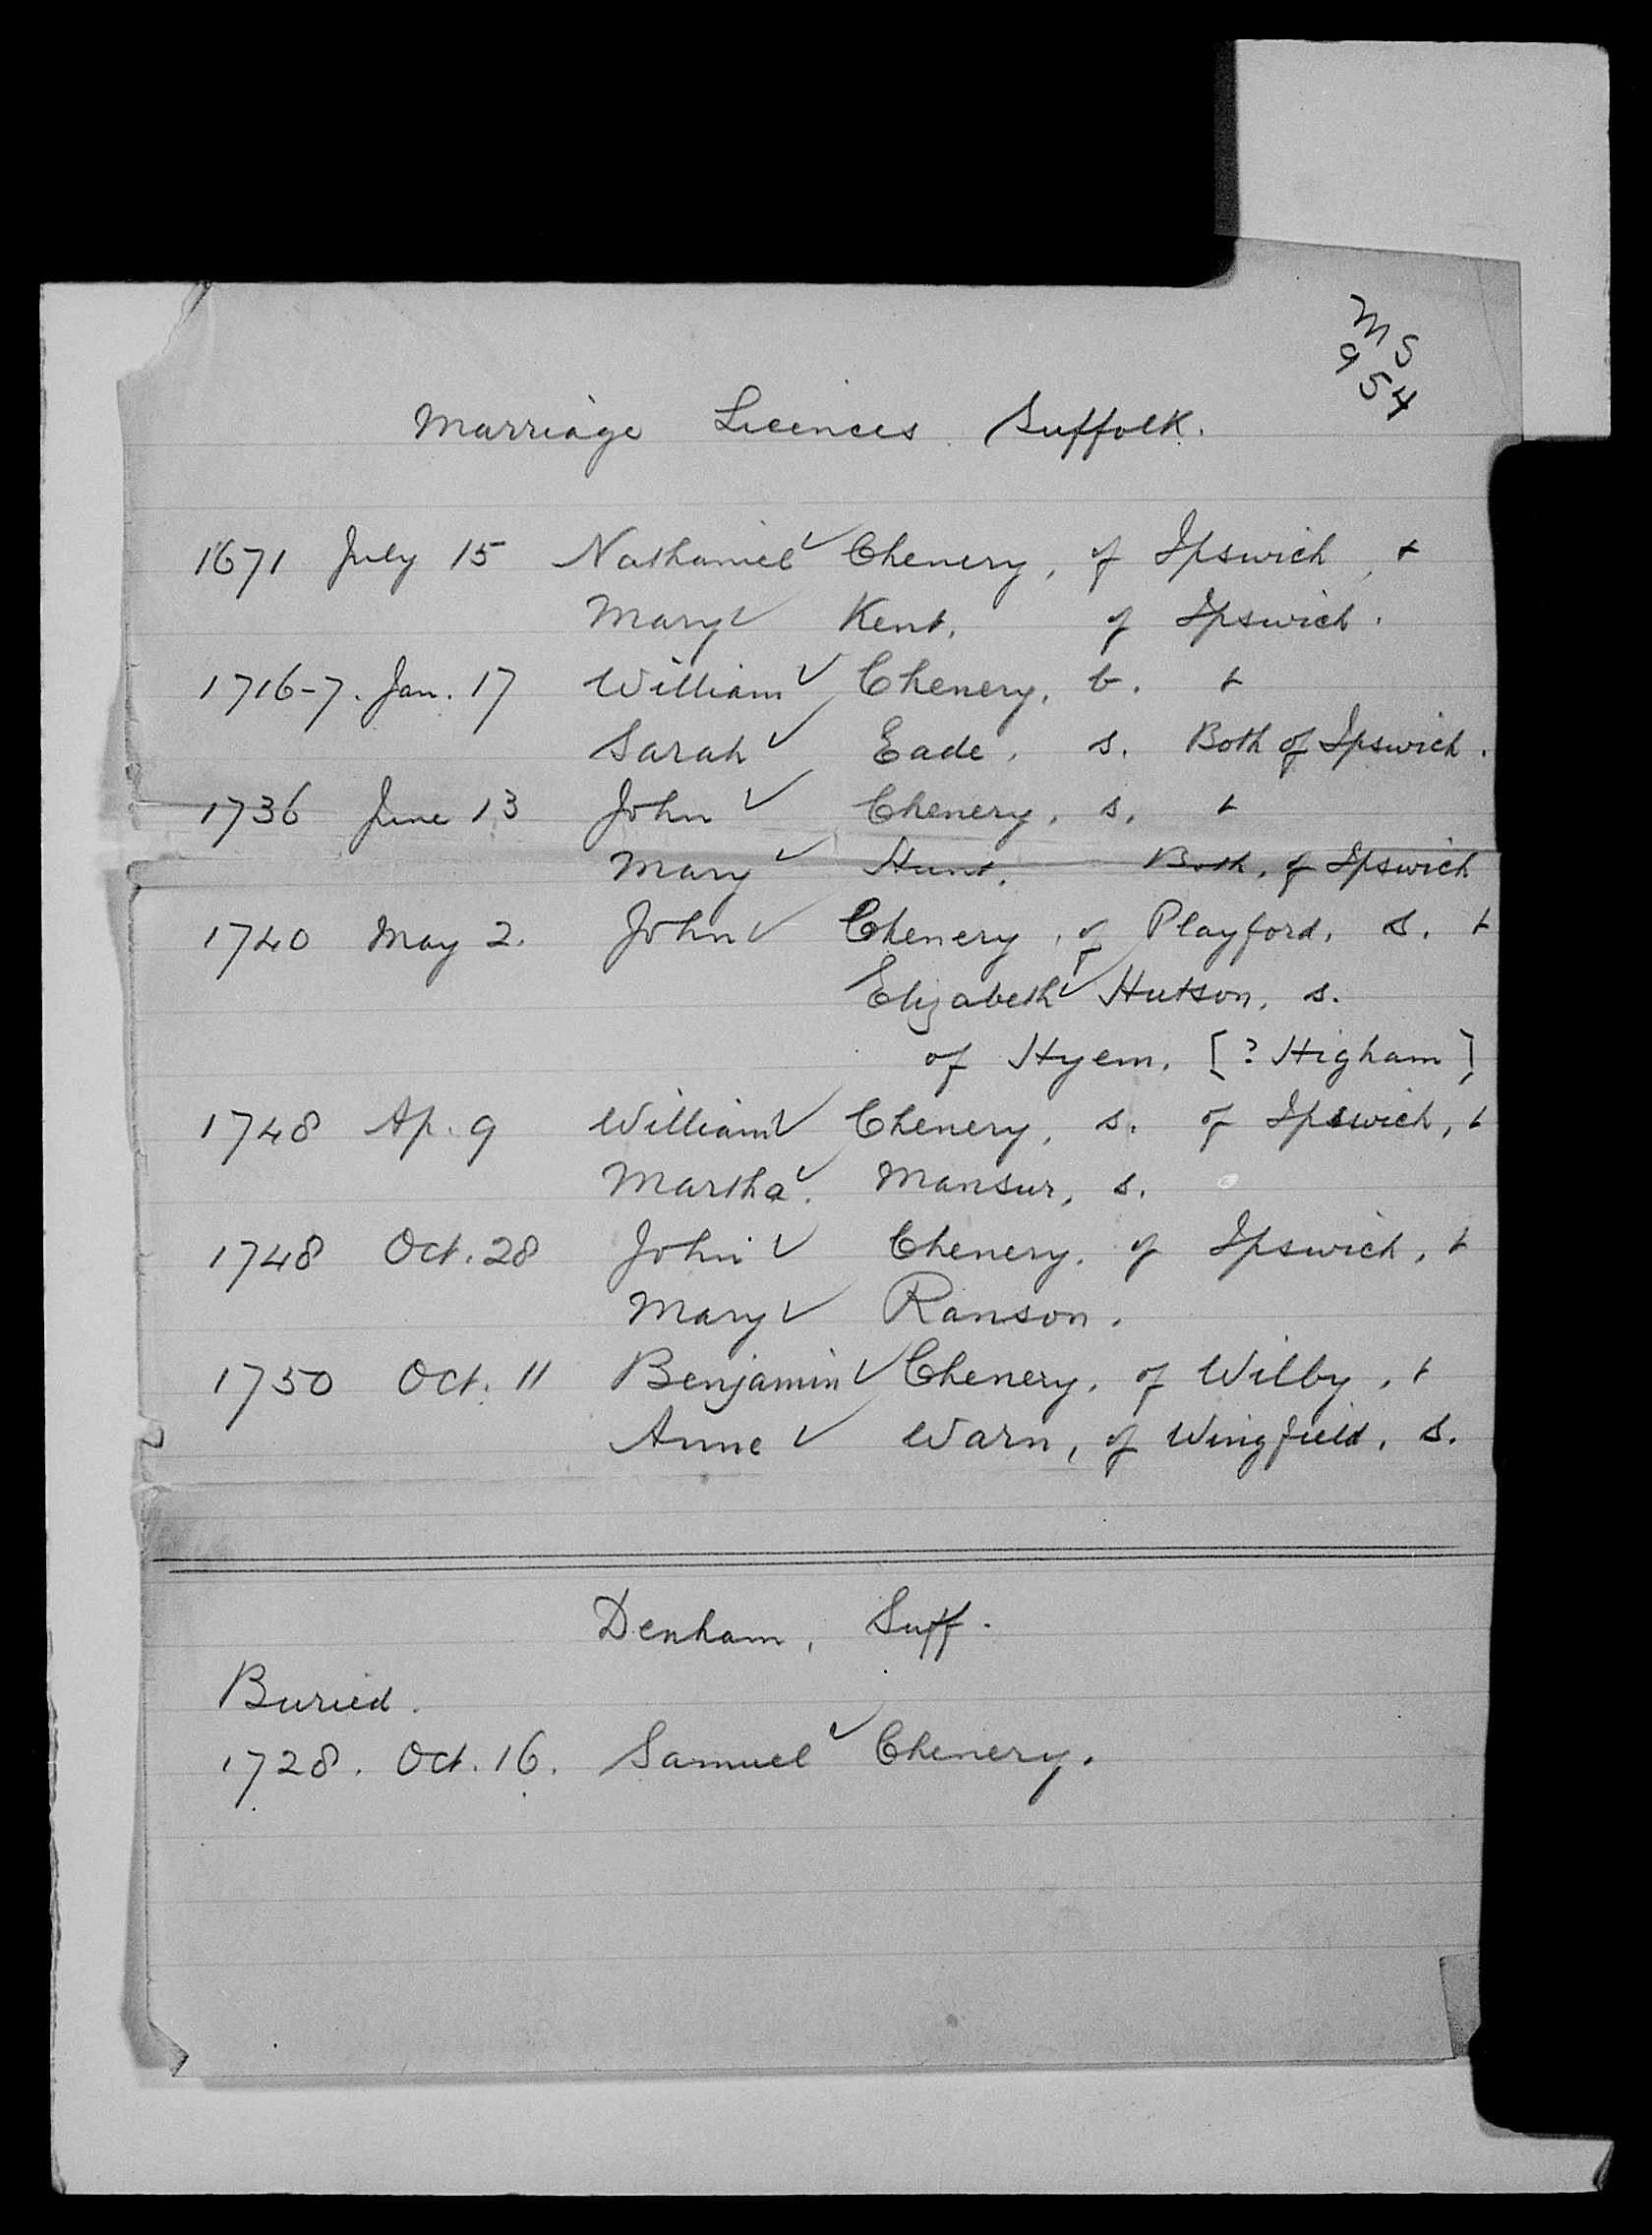 MS
954
Marriage Licences Suffolk.
1671 July 15 Nathaniel Chenery, of Ipswich, +
Mary Kent, of Ipswich.
1716-7. Jan. 17 William Chenery, b. +
Sarah Eade, s. Both of Ipswich.
1736 June 13 John Chenery, s. +
Mary Hunt. Both, of Ipswich
1740 May 2. John Chenery, of Playford, s. +
Elizabeth Hutson, s.
of Hyem, [? Higham]
1748 Ap. 9 William Chenery, s. of Ipswich, +
Martha. Mansur, s.
1748 Oct. 28 John Chenery, of Ipswich, +
Mary Ranson.
1750 Oct. 11 Benjamin Chenery, of Wilby, +
Anne Warn, of Wingfield, s.
Denham, Suff.
Buried.
1728. Oct. 16. Samuel Chenery.